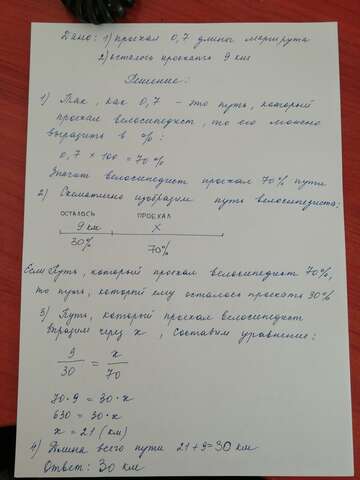 Дано: 1) проехал 0,7 длины маршрута
2) осталось проехать 9 км
Решение:
1) Так, как 0,7 – это путь, который
проехал велосипедист, то его можно
выразить в %:
0,7 × 100 = 70 %
Значит велосипедист проехал 70% пути
2) Схематично изобразим путь велосипедиста:
ОСТАЛОСЬ ПРОЕХАЛ
9 км х
30% 70%
Если Путь, который проехал велосипедист 70%,
то путь, который ему осталось проехать 30%
3) Путь, который проехал велосипедист
выразим через х, составим уравнение:
9/30 = х/70
70·9 = 30·х
630 = 30·х
х = 21 (км)
4) Длина всего пути 21+9=30 км
Ответ: 30 км